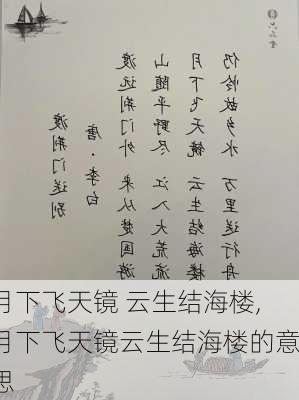 渡荆门送别
唐·李白
渡远荆门外 来从楚国游
山随平野尽 江入大荒流
月下飞天镜 云生结海楼
仍怜故乡水 万里送行舟
月下飞天镜 云生结海楼,
月下飞天镜云生结海楼的意
思